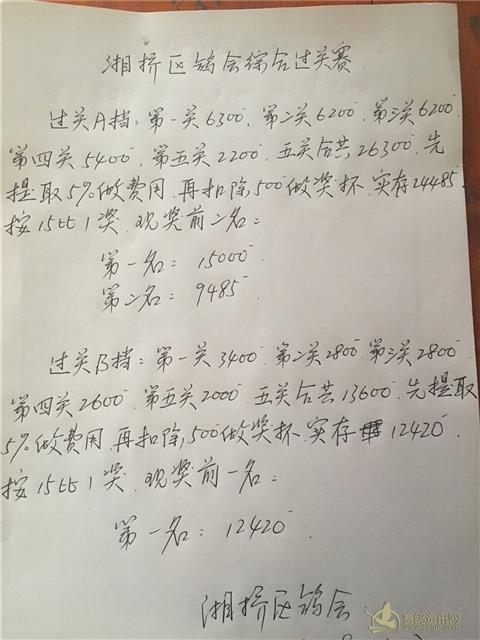 湘桥区鸽会综合过关赛
过关A档：第一关6300，第二关6200，第三关6200
第四关5400，第五关2200，五关合共26300，先
提取5%做费用，再扣除，500做奖杯，实存24485，
按15比1奖，现奖前二名：
第一名：15000
第二名：9485
过关B档：第一关3400 第二关2800 第三关2800
第四关2600，第五关2000，五关合共13600，先提取
5%做费用，再扣除，500做奖杯，实存12420，
按15比1奖，现奖前一名：
第一名：12420
湘桥区鸽会
赛鸽资讯网